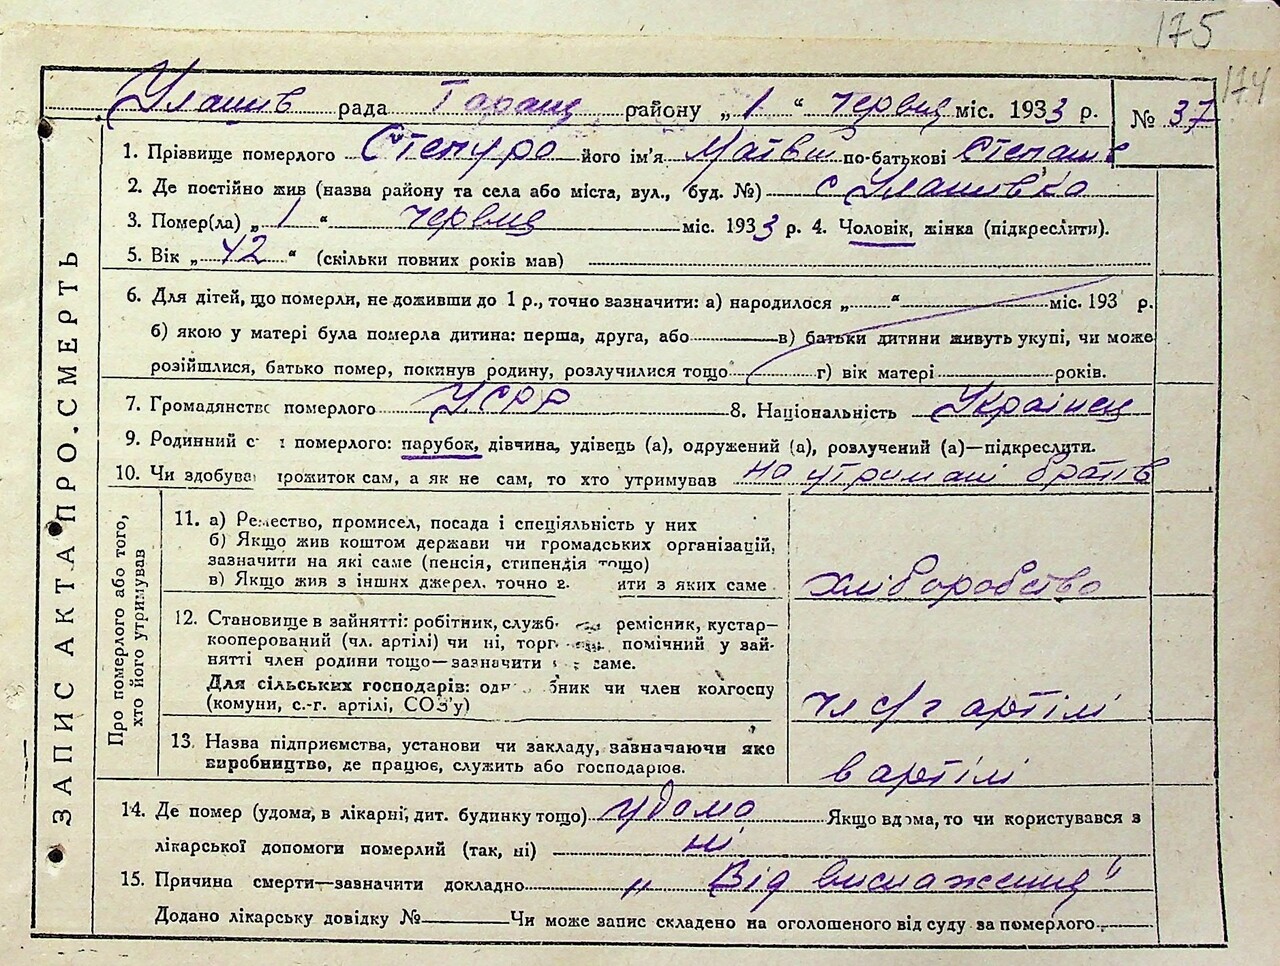 175
174
Улашів рада Таращ. району „1“ червня міс. 1933 р. № 37
1. Прізвище померлого Степура його ім'я Матвій по-батькові Степанів
2. Де постійно жив (назва району та села або міста, вул., буд. №) с Улашівка
3. Помер(ла) „1“ червня міс. 1933 р. 4. Чоловік, жінка (підкреслити).
5. Вік „42“ (скільки повних років мав)
6. Для дітей, що померли, не доживши до 1 р., точно зазначити: а) народилося „ “ міс. 193 р.
б) якою у матері була померла дитина: перша, друга, або в) батьки дитини живуть укупі, чи може
розійшлися, батько помер, покинув родину, розлучилися тощо г) вік матері років.
7. Громадянство померлого УСРР 8. Національність Українец
9. Родинний с і померлого: парубок, дівчина, удівець (а), одружений (а), розлучений (а)—підкреслити.
10. Чи здобува прожиток сам, а як не сам, то хто утримував на утримані братів
ЗАПИС АКТА ПРО СМЕРТЬ
Про померлого або того,
хто його утримував
11. а) Ремество, промисел, посада і спеціяльність у них
б) Якщо жив коштом держави чи громадських організацій,
зазначити на які саме (пенсія, стипендія тощо)
в) Якщо жив з інших джерел, точно з ити з яких саме
хліборобство
12. Становище в зайнятті: робітник, служб ремісник, кустар-
кооперований (чл. артілі) чи ні, торг помічний у зай-
нятті член родини тощо—зазначити саме.
Для сільських господарів: одн бник чи член колгоспу
(комуни, с.-г. артілі, СОЗ'у)
чл с/г артілі
13. Назва підприємства, установи чи закладу, зазначаючи яке
виробництво, де працює, служить або господарює.
в артілі
14. Де помер (удома, в лікарні, дит. будинку тощо) удома Якщо вдома, то чи користувався з
лікарської допомоги померлий (так, ні) ні
15. Причина смерти—зазначити докладно „Від виснаження“
Додано лікарську довідку № Чи може запис складено на оголошеного від суду за померлого